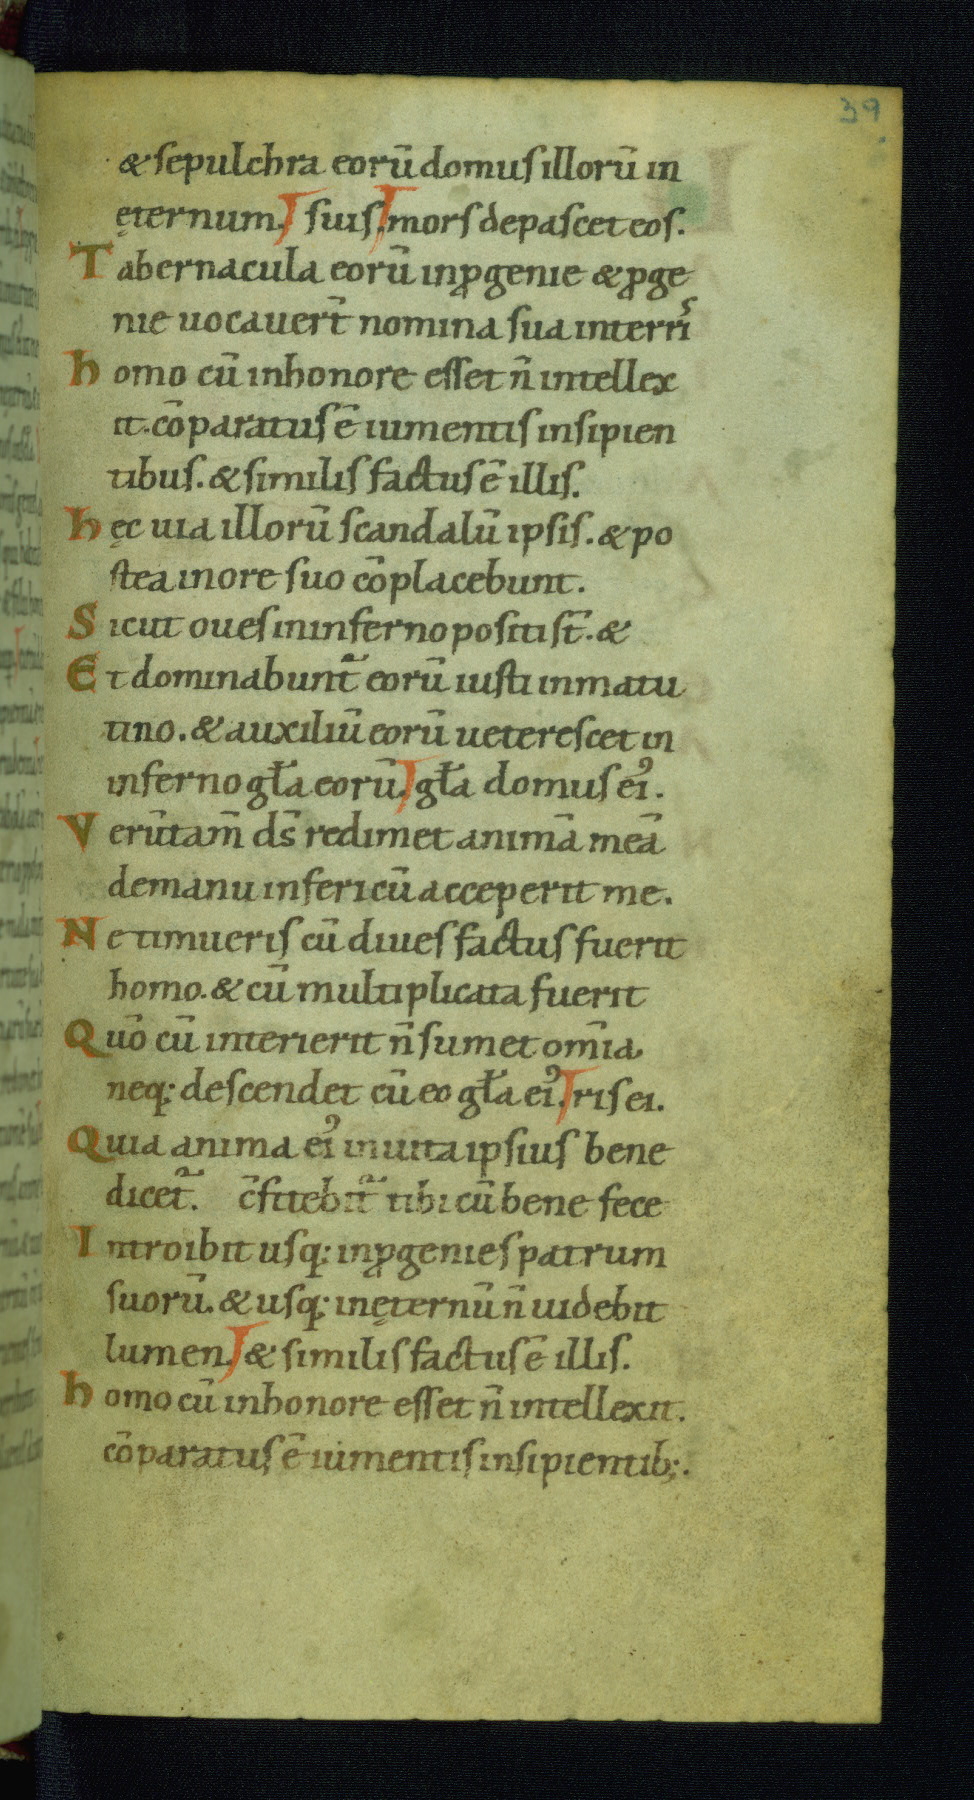 39
& sepulchra eorū domus illorū in
ęternum. suis. mors depascet eos.
Tabernacula eorū in ꝓgenie & ꝓge
nie uocauert̄ nomina sua interrıˢ
homo cū inhonore esset n̄ intellex
it. cōparatus ē iumentis insipien
tibus. & similis factus ē illis.
hęc uia illorū scandalū ipsis. & po
stea inore suo cōplacebunt.
Sicut oues ininferno positi st̄. &
Et dominabunt̄ eorū iusti inmatu
tino. & auxiliū eorū ueterescet in
inferno gła eorū. gła domus eı᾽.
Verūtam̄ ds̄ redimet animā meā
demanu inferi cū acceperit me.
Ne timueris cū diues factus fuerit
homo. & cū multiplicata fuerit
Quō cū interierit n̄ sumet om̄ia
neq; descendet cū eo gła eı᾽. ris ei.
Quia anima eı᾽ inuita ipsius bene
dicet̄. c̄fitebit̄ tibi cū bene fece
Introibit usq; inꝓgenies patrum
suorū. & usq; inęternū n̄ uidebit
lumen. & similis factus ē illis.
homo cū inhonore esset n̄ intellexit.
cōparatus ē iumentis insipientib;.